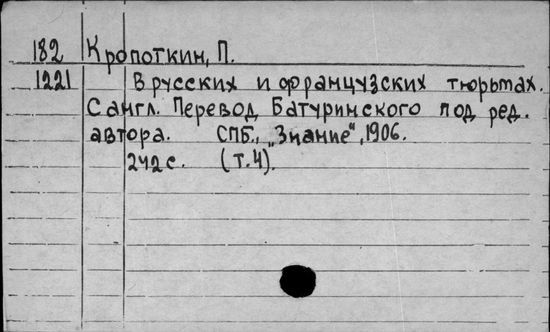 182 Кропоткин, П.
1221 В русских и французских тюрьмах.
С англ. Перевод Батуринского под ред.
автора. СПБ., „Знание", 1906.
242 с. (т. 4).